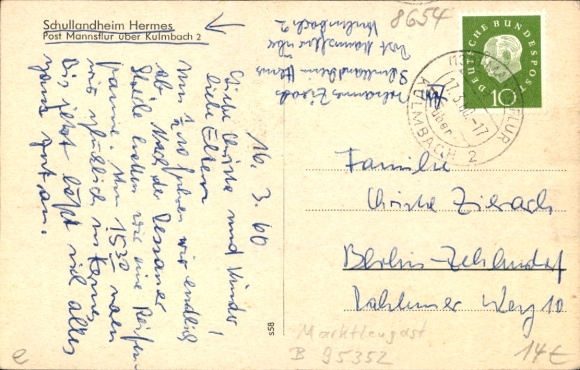 Schullandheim Hermes
Post Mannsflur über Kulmbach 2
16. 3. 60
Liebe Christa und Kinder!
liebe Eltern
Um 7 Uhr fuhren wir endlich
ab. Nach der Dessauer
Straße hatten wir eine Reifen-
panne. Um 15 30 waren
wir glücklich in Hermes.
Bis jetzt läßt sich alles
ganz gut an.
Schullandheim Hermes
Post Mannsflur über
Kulmbach 2
8654
DEUTSCHE BUNDESPOST
10
17.3.60.-17
über
KULMBACH 2
Familie
Christa
Berlin-Zehlendorf
Dahlemer Weg 10
s58
Marktleugast
B 95352
14€
e